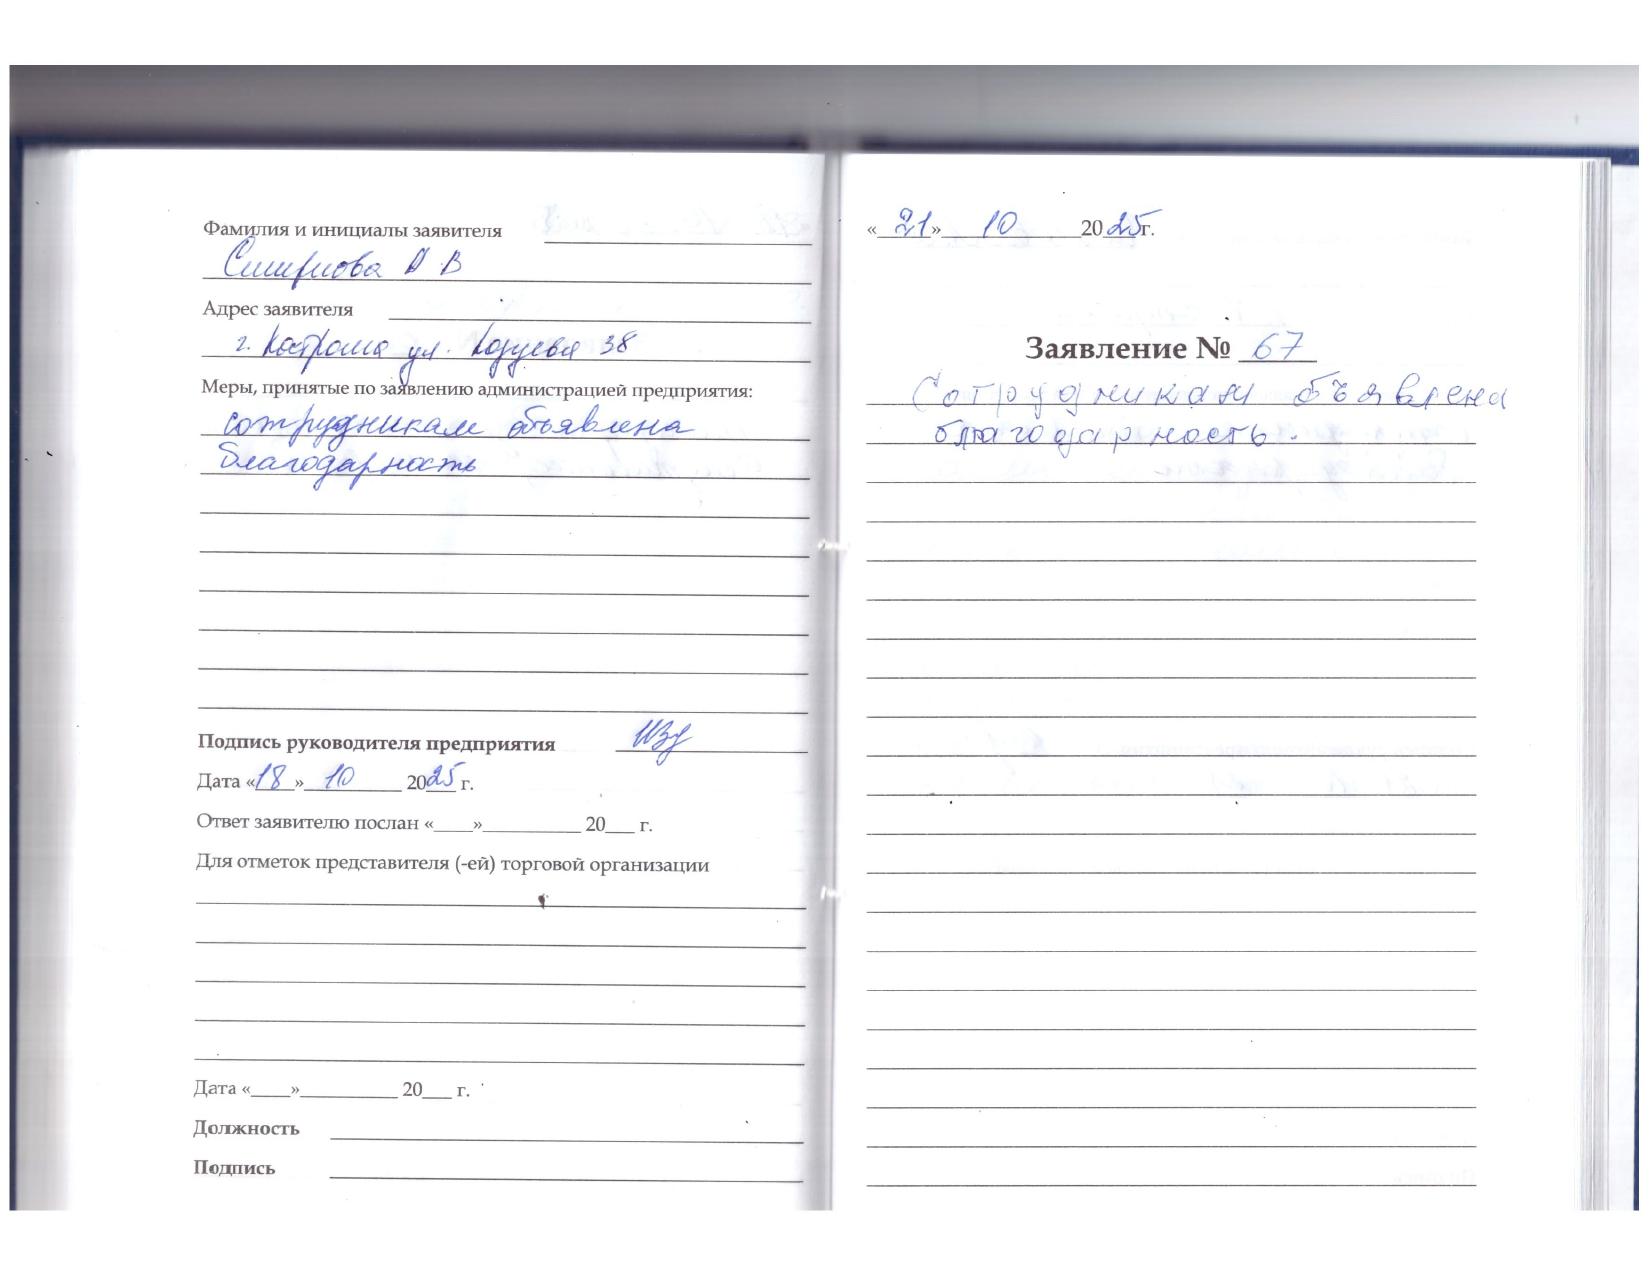 Фамилия и инициалы заявителя
Смирнова А В
Адрес заявителя
г. Кострома ул. 38
Меры, принятые по заявлению администрацией предприятия:
сотрудникам объявлена
благодарность
Подпись руководителя предприятия
Дата «18» 10 2025 г.
Ответ заявителю послан «____»__________ 20___ г.
Для отметок представителя (-ей) торговой организации
Дата «____»__________ 20___ г.
Должность
Подпись
«21» 10 2025г.
Заявление № 67
Сотрудникам бъявлена
благодарность.